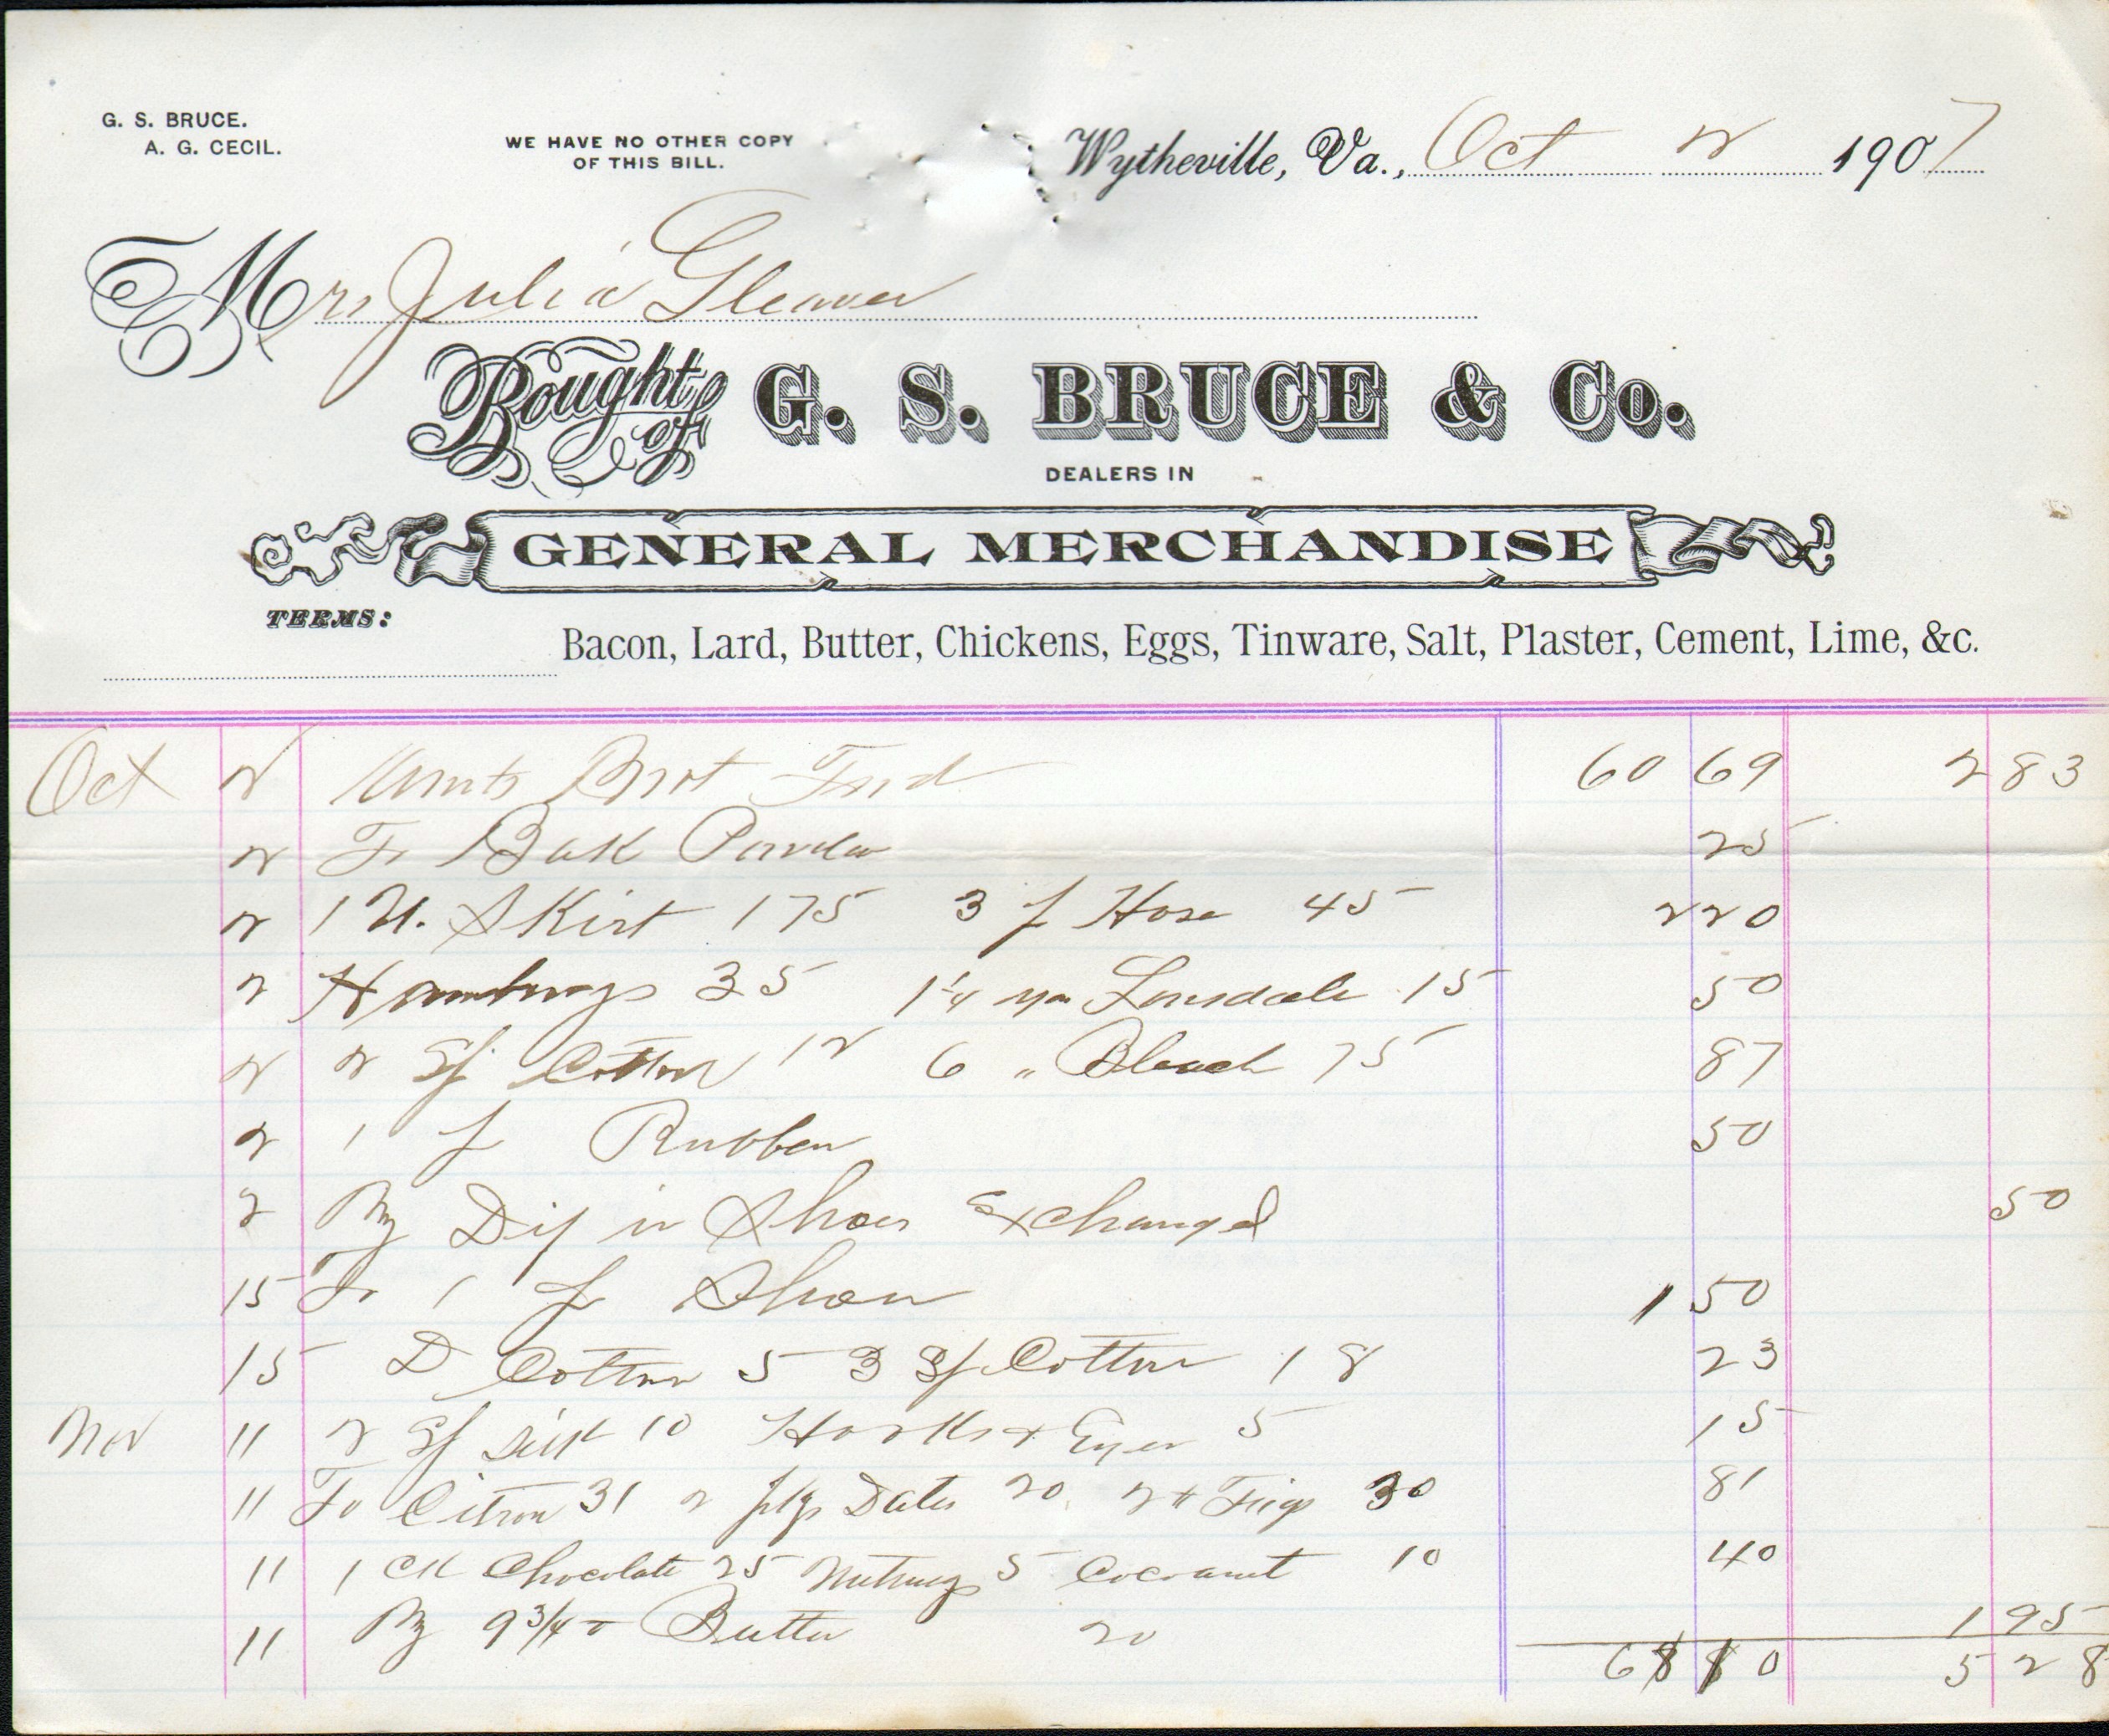 G. S. BRUCE.
A. G. CECIL.
WE HAVE NO OTHER COPY
OF THIS BILL.
Wytheville, Va., Oct 2 1907
Mrs Julia Gleaves
Bought of G. S. BRUCE & Co.
DEALERS IN
GENERAL MERCHANDISE
TERMS:
Bacon, Lard, Butter, Chickens, Eggs, Tinware, Salt, Plaster, Cement, Lime, &c.
Oct 2 Amts Brot Ford 60 69 2 83
2 To Bak Powder 25
2 1 U. Skirt 175 3 pr Hose 45 2 20
2 Hamburg 35 1 1/4 yds Lonsdale 15 50
2 2 Sp Cotton 12 6 " Bleach 75 87
2 1 pr Rubbers 50
2 By Dif in Shoes Exchanged 50
15 To 1 pr Shoes 1 50
15 D Cotton 5 3 Sp Cotton 18 23
Nov 11 2 Sp Silk 10 Hooks & Eyes 5 15
11 To Citron 31 2 pkgs Dates 20 2 # Figs 30 81
11 1 CK Chocolate 25 Nutmegs 5 Cocoanut 10 40
11 By 9 3/4 # Butter 20 1 95
68 10 5 28